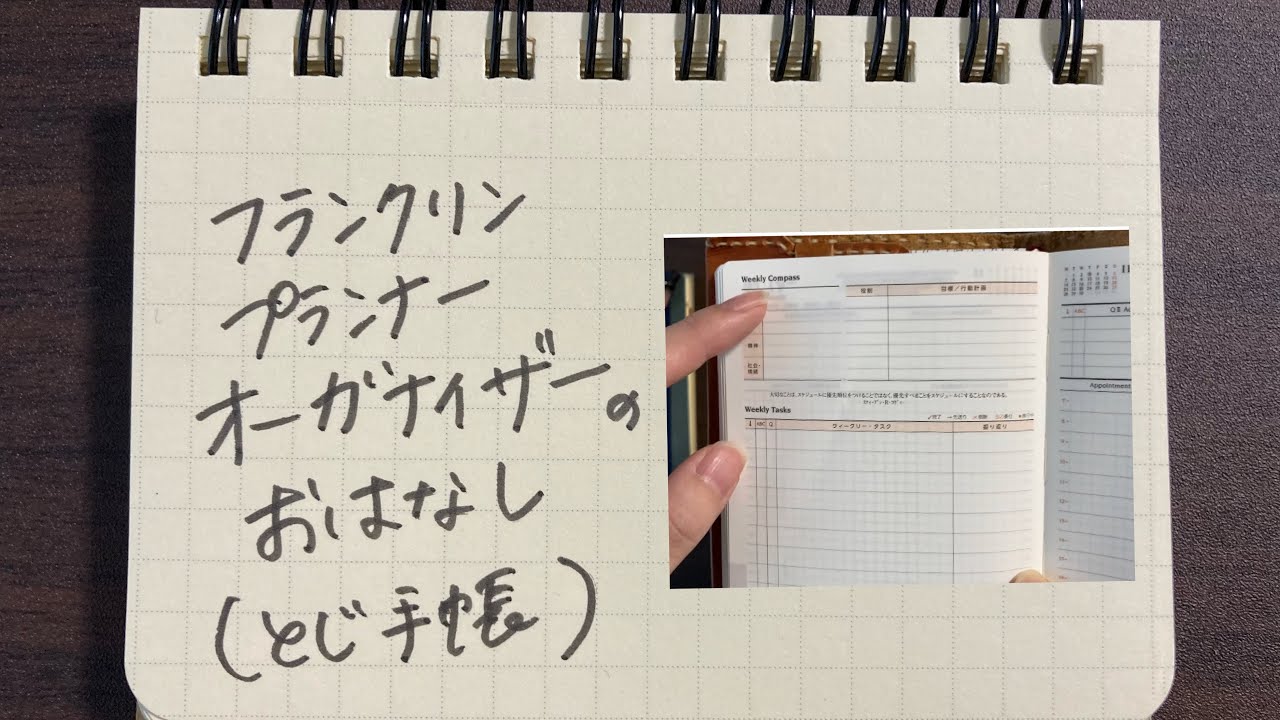 フランクリン
プランナー
オーガナイザーの
おはなし
(とじ手帳)
Weekly Compass
役割 目標/行動計画
精神
社会・
情緒
大切なことは、スケジュールに優先順位をつけることではなく、優先すべきことをスケジュールにすることなのである。
Weekly Tasks
↓ ABC Q ウィークリー・タスク 振り返り
↓ ABC
Appointment